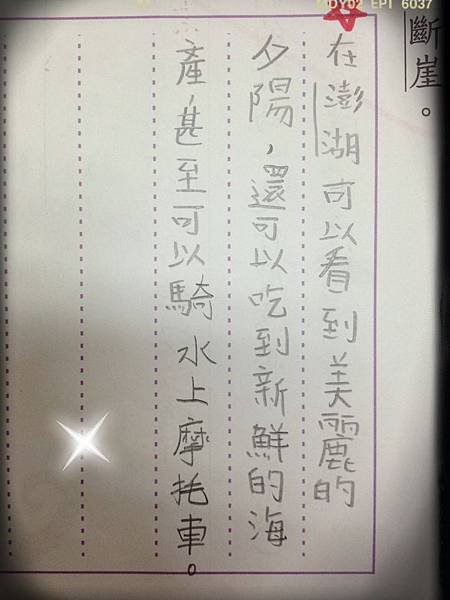 DY02 EPT 6037
斷崖。
在澎湖可以看到美麗的
夕陽,還可以吃到新鮮的海
產,甚至可以騎水上摩托車。